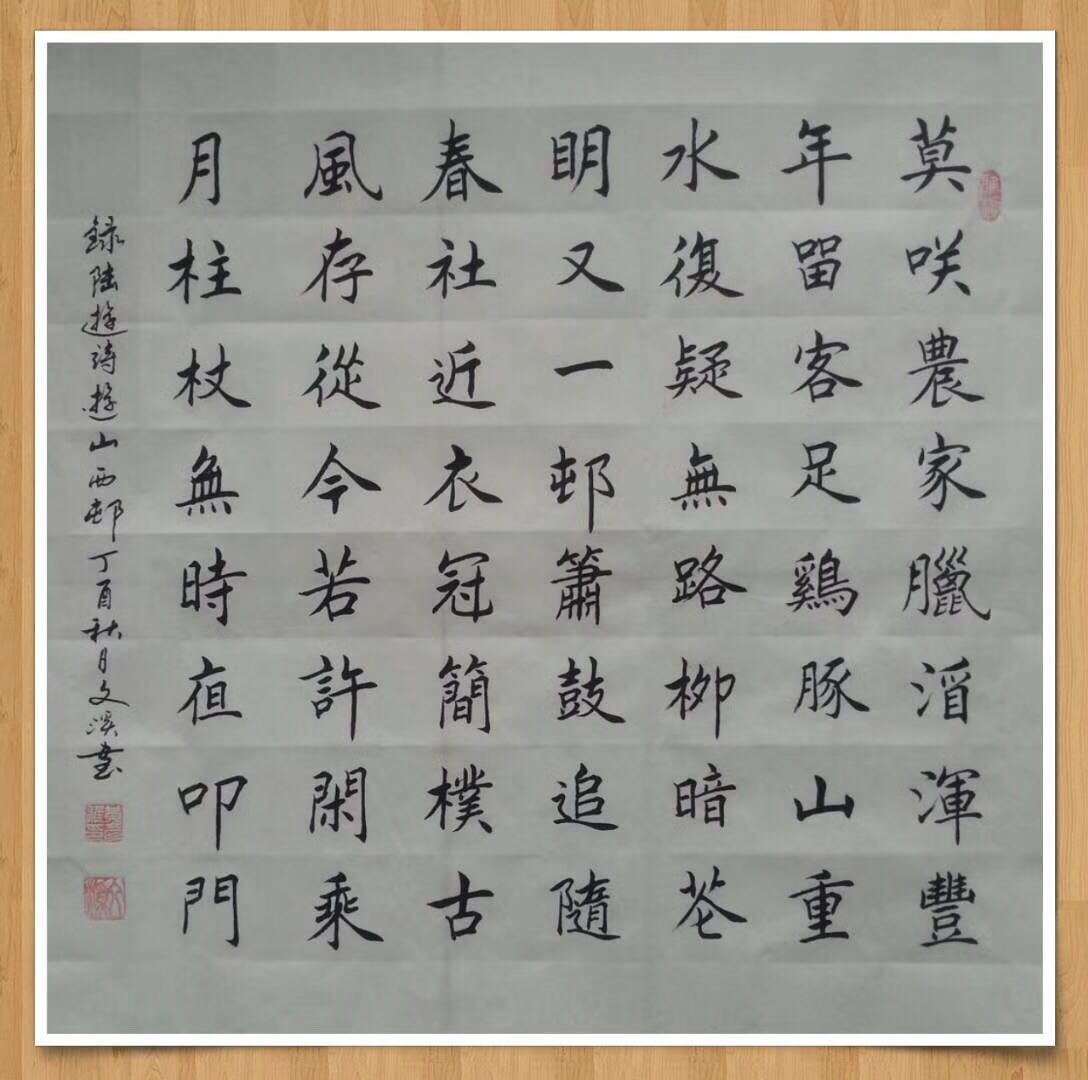 莫咲農家臘酒渾豐
年留客足鷄豚山重
水復疑無路栁暗花
眀又一邨簫鼓追隨
春社近衣冠簡樸古
風存從今若許閑乘
月柱杖無時夜叩門
録陸遊詩遊山西邨丁酉秋月文溪書